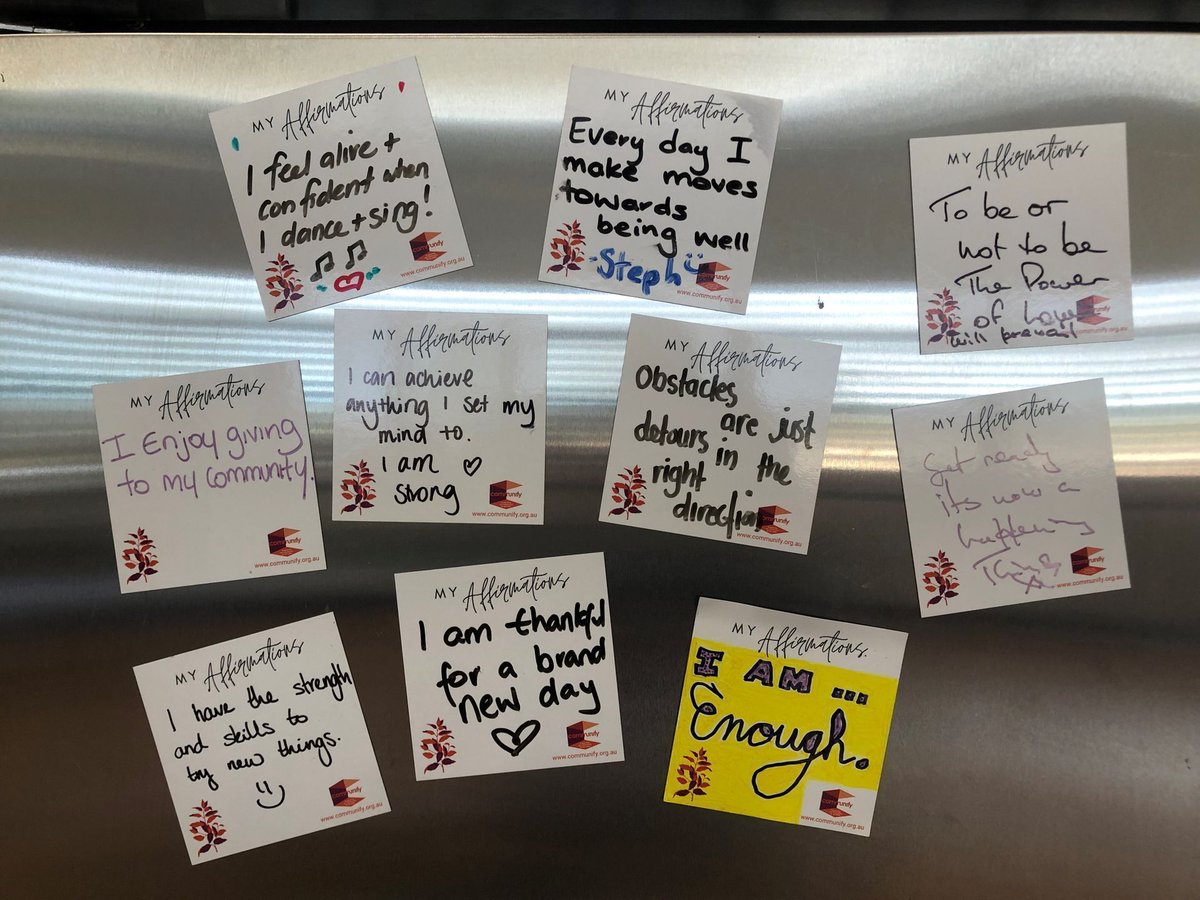 MY Affirmations
I feel alive +
confident when
I dance + sing!
communify
www.communify.org.au
MY Affirmations
Every day I
make moves
towards
being well
-Steph
communify
www.communify.org.au
MY Affirmations
To be or
not to be
The Power
of Love
will prevail
MY Affirmations
I Enjoy giving
to my Community.
communify
www.communify.org.au
MY Affirmations
I can achieve
anything I set my
mind to.
I am
strong
communify
www.communify.org.au
MY Affirmations
Obstacles
are just
detours in the
right
direction
www.communify.org.au
MY Affirmations
Get ready
its now a
happening
www.communify.org.au
MY Affirmations
I have the strength
and skills to
try new things.
communify
www.communify.org.au
MY Affirmations
I am thankful
for a brand
new day
communify
www.communify.org.au
MY Affirmations
I AM ...
Enough.
communify
www.communify.org.au